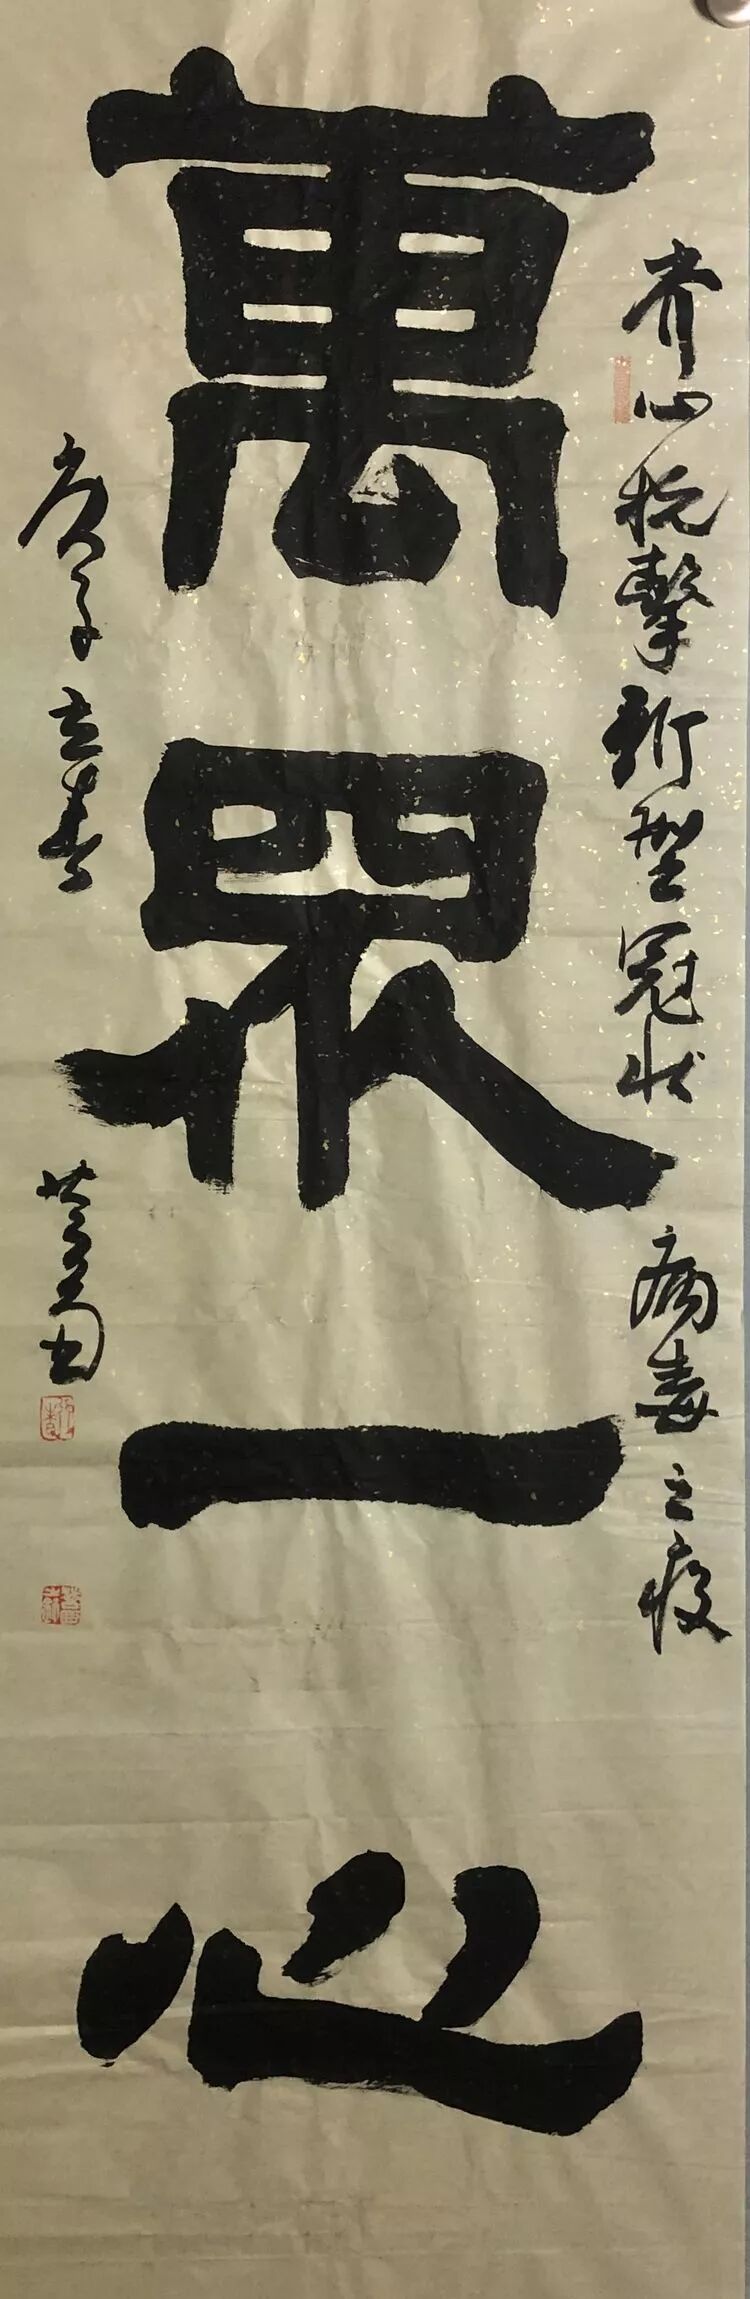 齐心抗擊新型冠状病毒之疫
萬眾一心
庚子立春
书